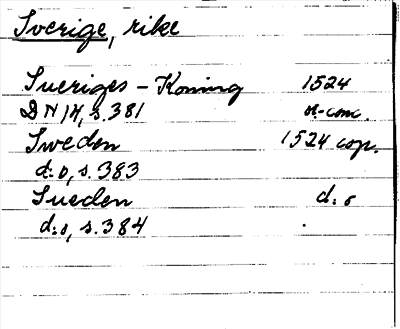 Sverige, rike
Sueriges - Konung 1524
DN 14, s. 381 o.-conc.
Sweden 1524 cop.
d:o, s. 383
Sueden d:o
d:o, s. 384